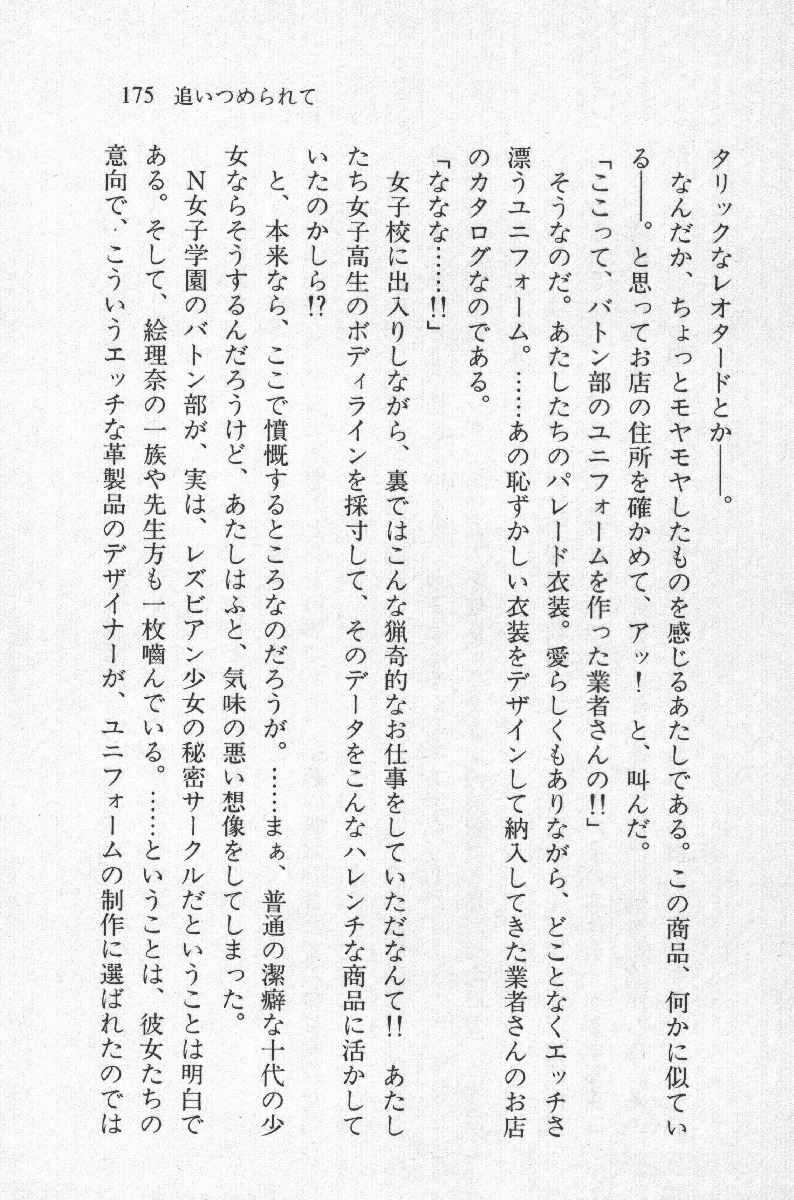 175 追いつめられて
タリックなレオタードとか――。
なんだか、ちょっとモヤモヤしたものを感じるあたしである。この商品、何かに似てい
る――。と思ってお店の住所を確かめて、アッ! と、叫んだ。
「ここって、バトン部のユニフォームを作った業者さんの!!」
そうなのだ。あたしたちのパレード衣装。愛らしくもありながら、どことなくエッチさ
漂うユニフォーム。……あの恥ずかしい衣装をデザインして納入してきた業者さんのお店
のカタログなのである。
「ななな……!!」
女子校に出入りしながら、裏ではこんな猟奇的なお仕事をしていただなんて!! あたし
たち女子高生のボディラインを採寸して、そのデータをこんなハレンチな商品に活かして
いたのかしら!?
と、本来なら、ここで憤慨するところなのだろうが。……まぁ、普通の潔癖な十代の少
女ならそうするんだろうけど、あたしはふと、気味の悪い想像をしてしまった。
N女子学園のバトン部が、実は、レズビアン少女の秘密サークルだということは明白で
ある。そして、絵理奈の一族や先生方も一枚嚙んでいる。……ということは、彼女たちの
意向で、こういうエッチな革製品のデザイナーが、ユニフォームの制作に選ばれたのでは